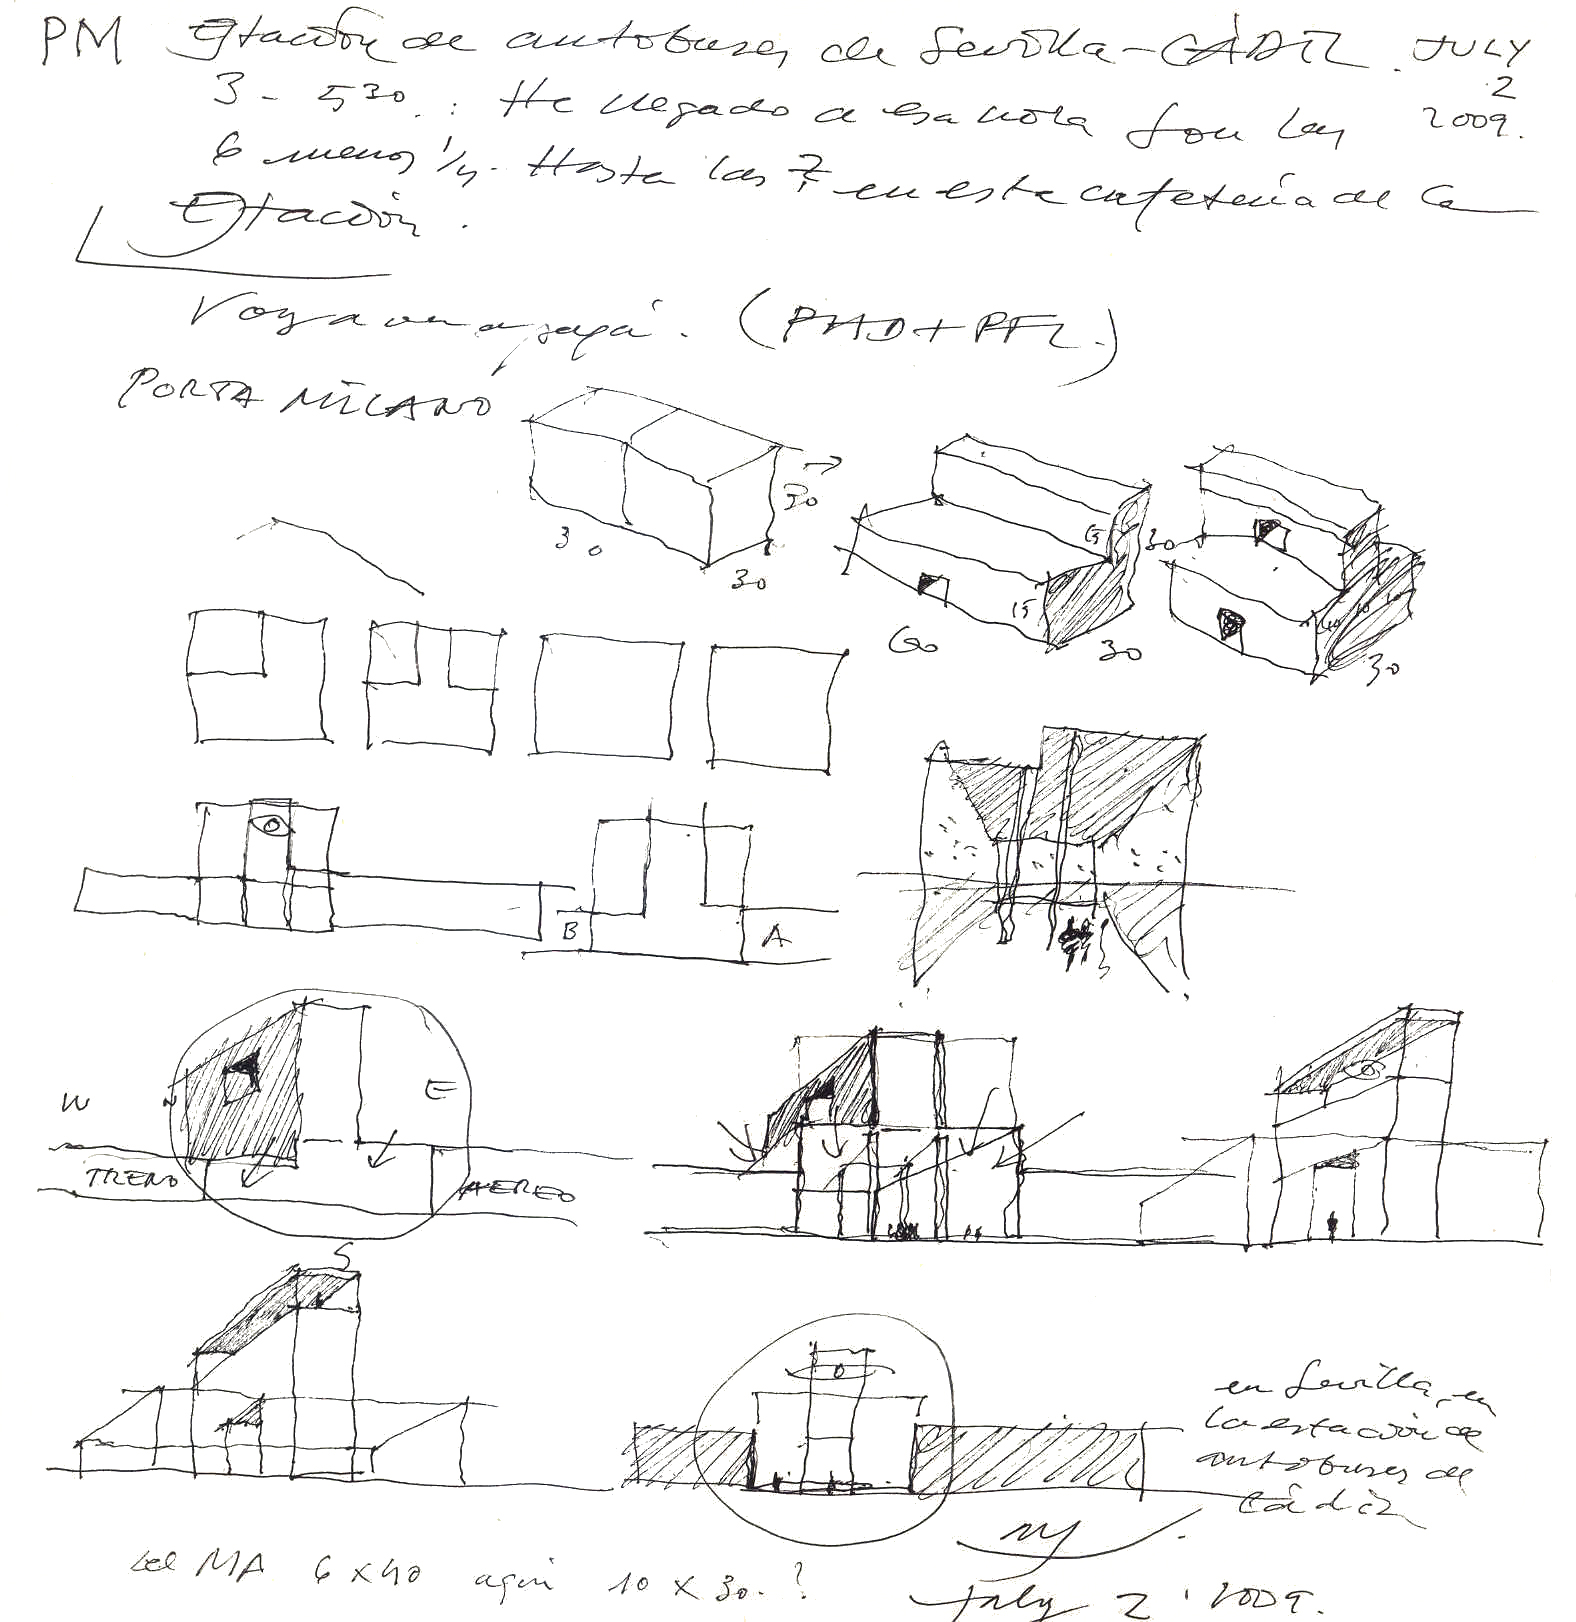 PM Estación de autobuses de Sevilla - CÁDIZ. JULY
2
3 - 5³⁰.: He llegado a esa hora son las 2009.
6 menos 1/4. Hasta las 7 en esta cafetería de la
Estación.
Voy a ver a papá. (PHD + PFL.)
PORTA MILANO
30
30
30
15
30
15
60
30
10
10
10
30
B A
W E
TRENO AEREO
S
en Sevilla, en
la estación de
autobuses de
Cádiz
del MA 6 x 40 aquí 10 x 30. ?
July 2. 2009.